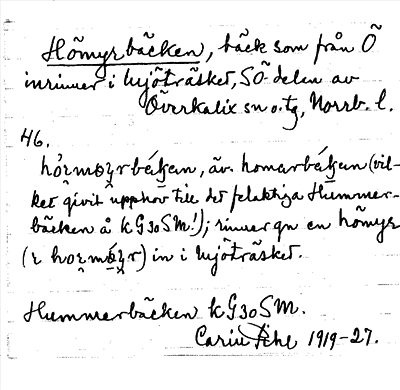 Hömyrbäcken, bäck som från Ö
inrinner i Lujöträsket, SÖ delen av
Överkalix sn o. tg, Norrb. l.
46.
bäcken, äv. homarbäcken (vil-
ket givit upphov till det felaktiga Hummer-
bäcken å kG30SM!); rinner gn en hömyr
in i Lujöträsket.
Hummerbäcken kG30SM.
Carin Pihl 1919-27.